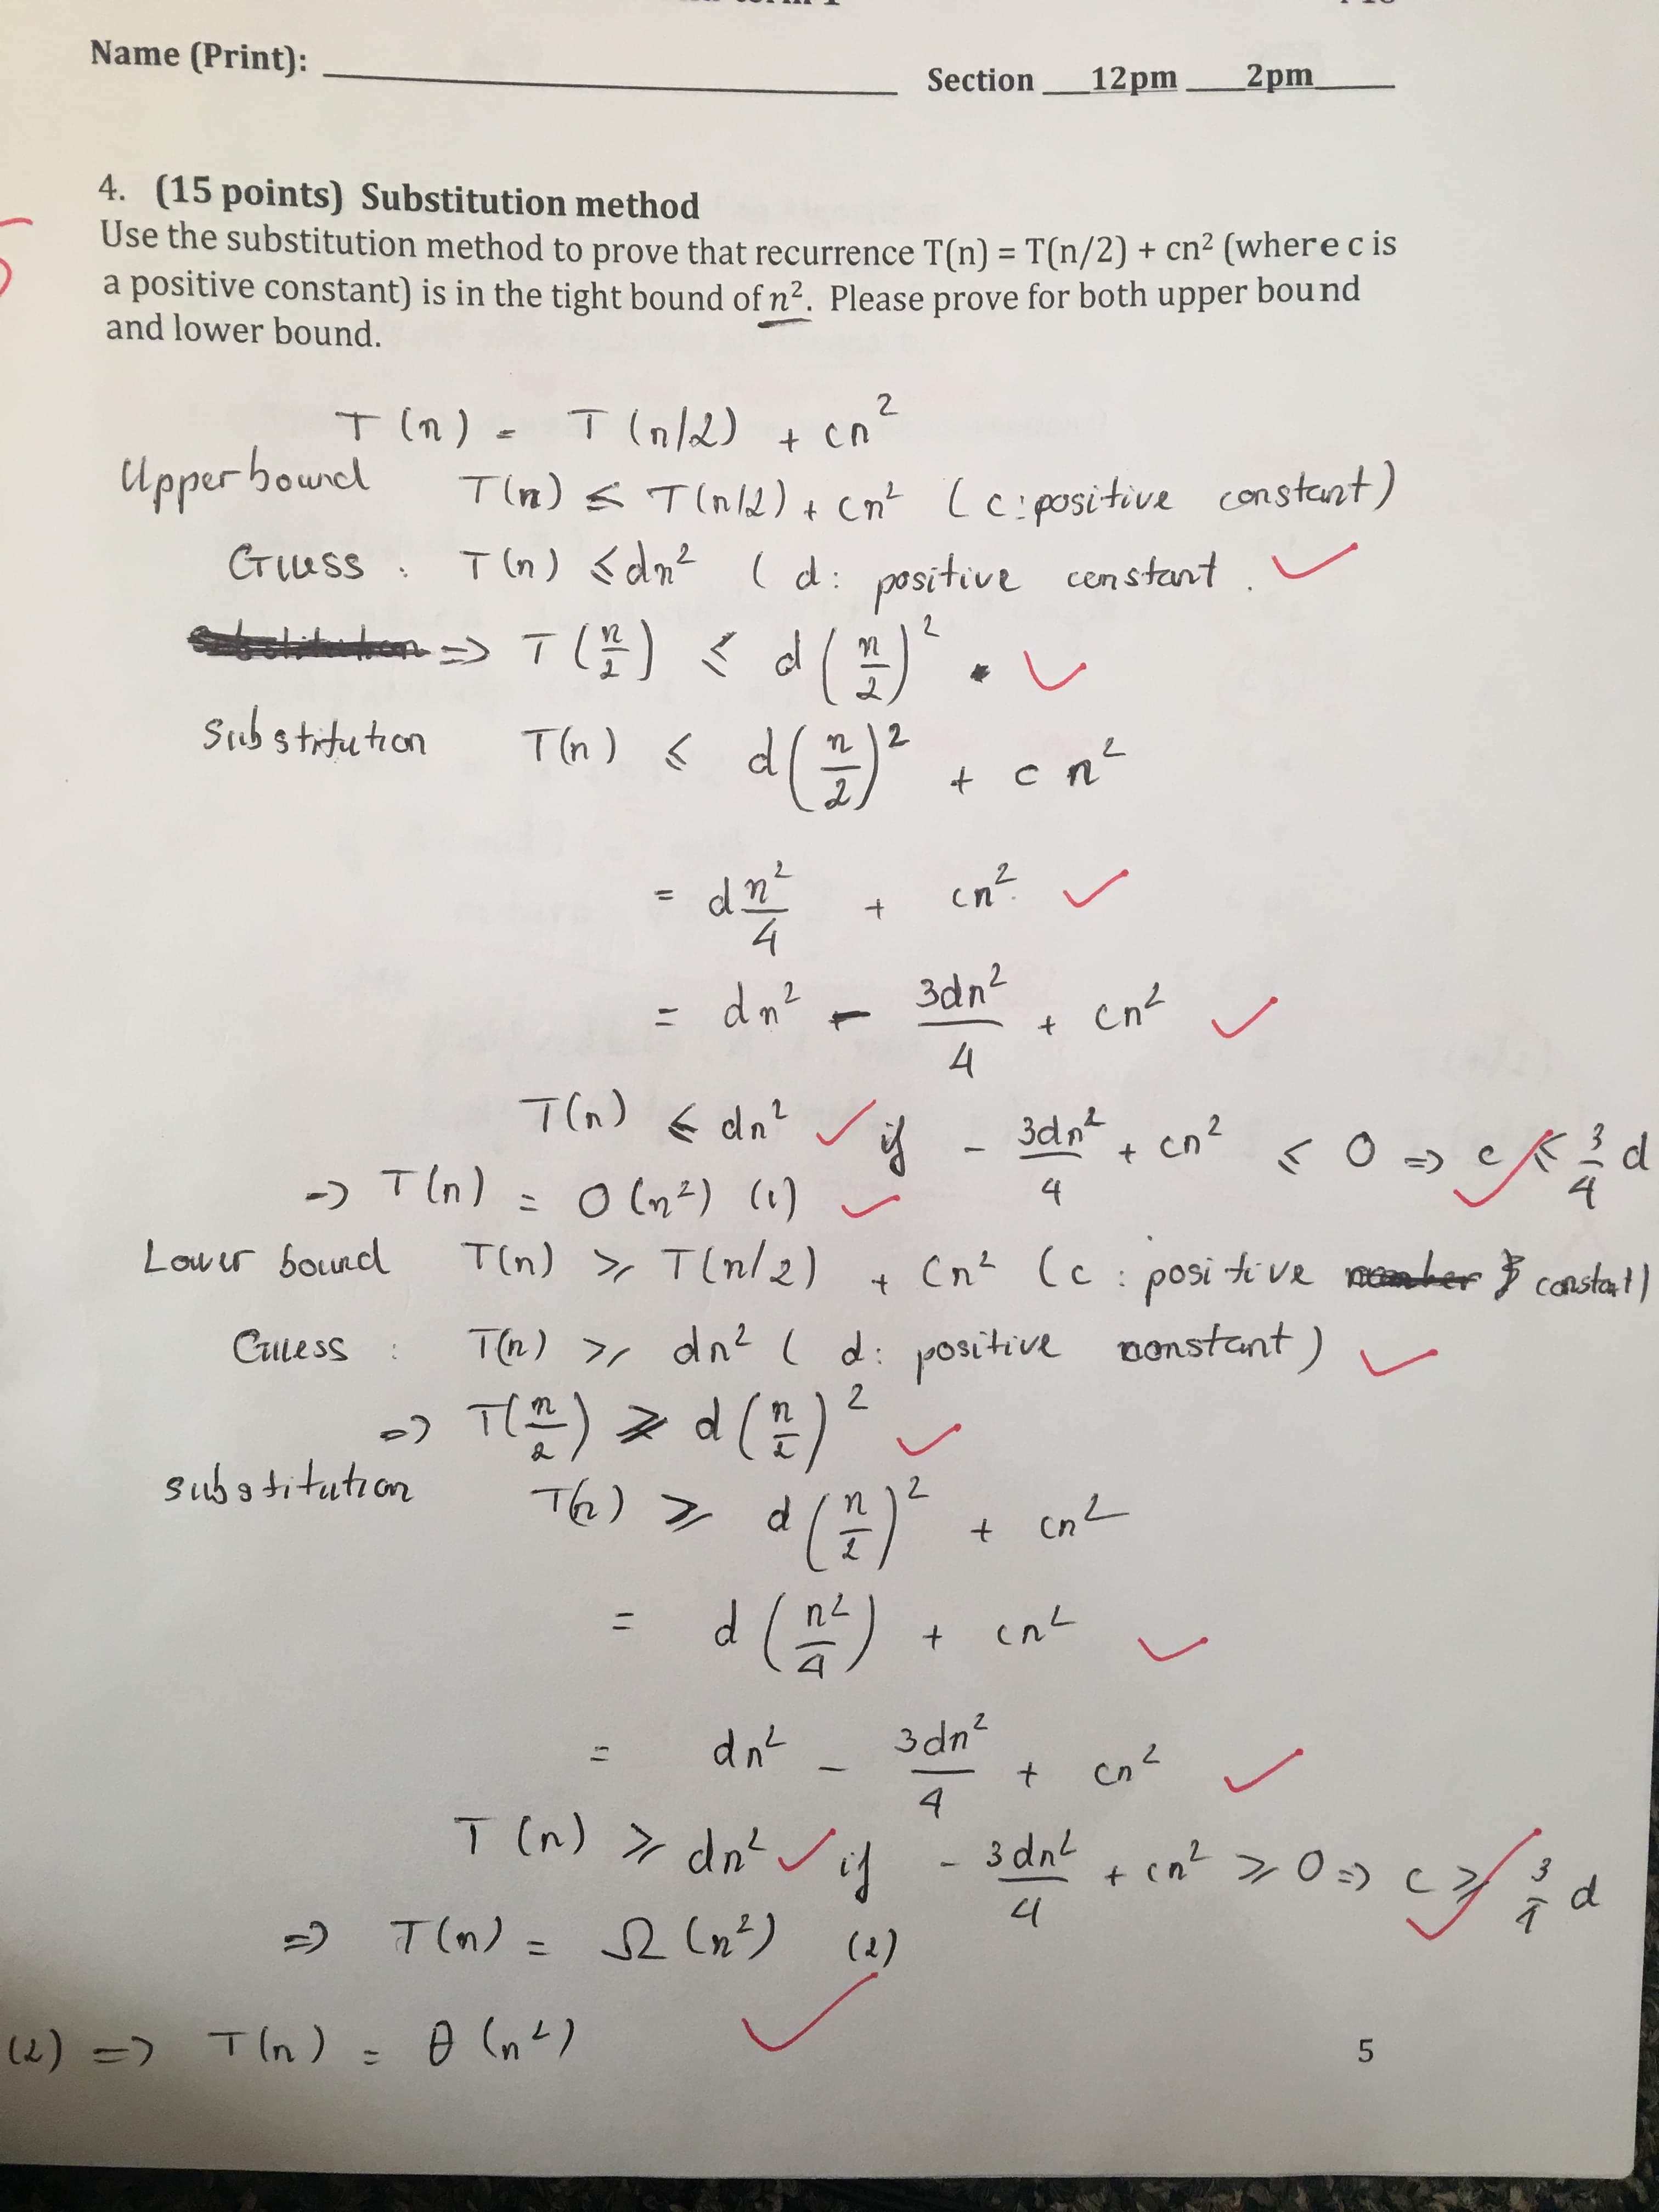 Name (Print): ____________ Section ___12pm ___2pm____
4. (15 points) Substitution method
Use the substitution method to prove that recurrence T(n) = T(n/2) + cn² (where c is
a positive constant) is in the tight bound of n². Please prove for both upper bound
and lower bound.
T(n) = T(n/2) + cn²
Upper bound T(n) ≤ T(n/2) + cn² (c: positive constant)
Guess : T(n) ≤ dn² (d: positive constant.
⇒ T(n/2) ≤ d(n/2)².
Substitution T(n) ≤ d(n/2)² + cn²
= dn²/4 + cn²
= dn² - 3dn²/4 + cn²
T(n) ≤ dn² if - 3dn²/4 + cn² ≤ 0 ⇒ c ≤ 3/4 d
⇒ T(n) = O(n²) (1)
Lower bound T(n) ≥ T(n/2) + Cn² (c : positive constant)
Guess : T(n) ≥ dn² (d: positive constant)
⇒ T(n/2) ≥ d(n/2)²
substitution T(n) ≥ d(n/2)² + cn²
= d(n²/4) + cn²
= dn² - 3dn²/4 + cn²
T(n) ≥ dn² if - 3dn²/4 + cn² ≥ 0 ⇒ c ≥ 3/4 d
⇒ T(n) = Ω(n²) (2)
(2) ⇒ T(n) = θ(n²)
5